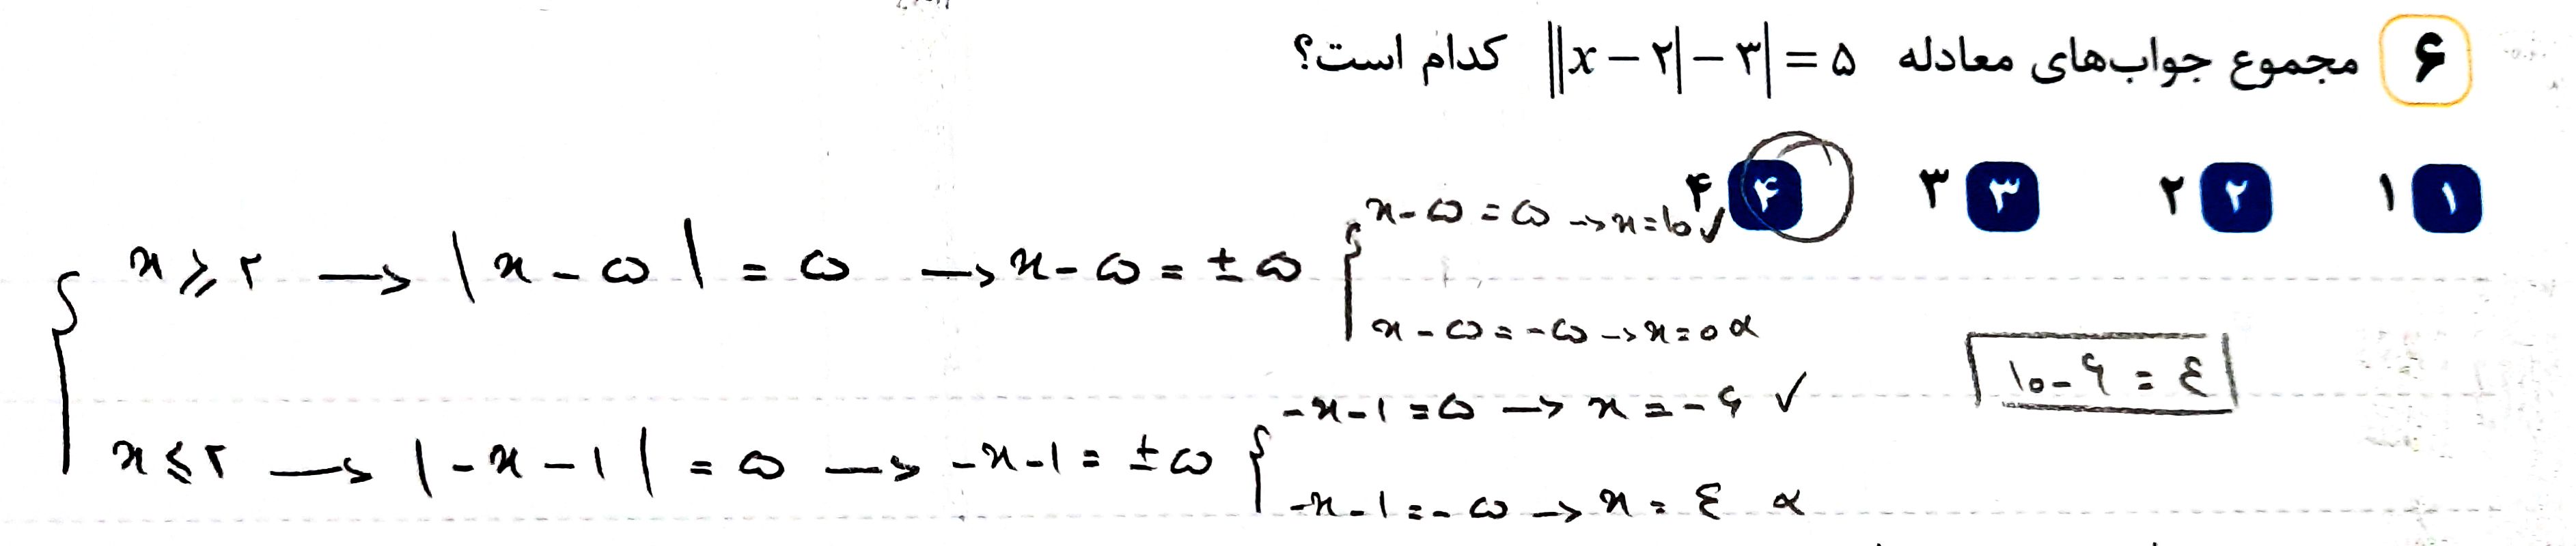 ۶ مجموع جواب‌های معادله ||x − ۲| − ۳| = ۵ کدام است؟
۱ ۱ ۲ ۲ ۳ ۳ ۴ ۴
x ≥ ۲ → |x − ۵| = ۵ → x − ۵ = ±۵
x − ۵ = ۵ → x = ۱۰ ✓
x − ۵ = −۵ → x = ۰ ×
x ≤ ۲ → |−x − ۱| = ۵ → −x − ۱ = ±۵
−x − ۱ = ۵ → x = −۶ ✓
−x − ۱ = −۵ → x = ۴ ×
۱۰ − ۶ = ۴